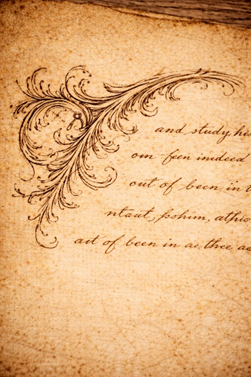 and study hu
om feen imdeed
out of been in t
ntaut, pohim, athic
act of been in ac three ac